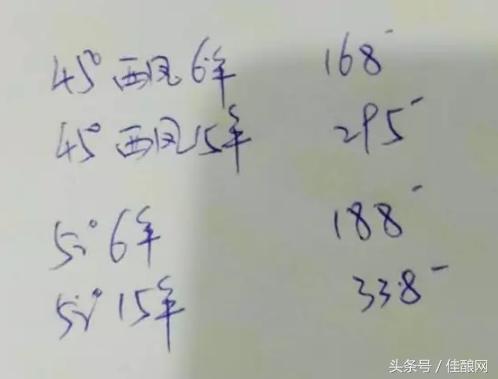 45° 西凤 6年 168-
45° 西凤 15年 295-
5i° 6年 188-
5i° 15年 338-
头条号 / 佳酿网